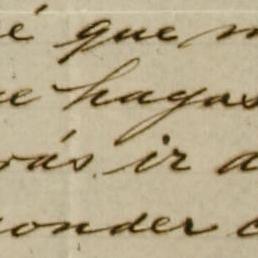 é que m
ue hagas
rás ir a
ponder c